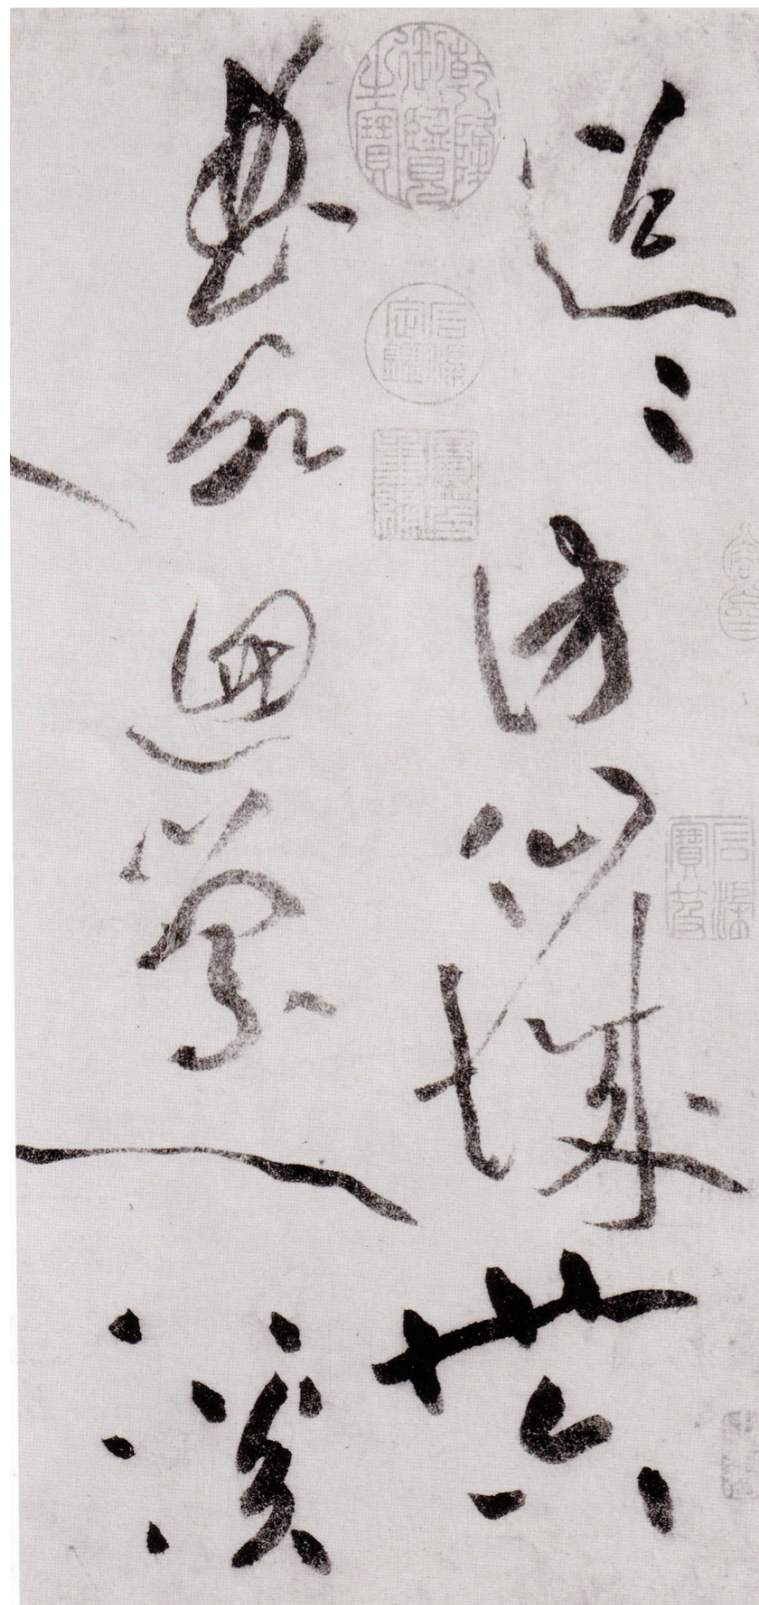 迢迢訪仙城卅六
曲水迴縈一溪
乾隆御覽之寶
石渠定鑑
寶笈重編
石渠寶笈